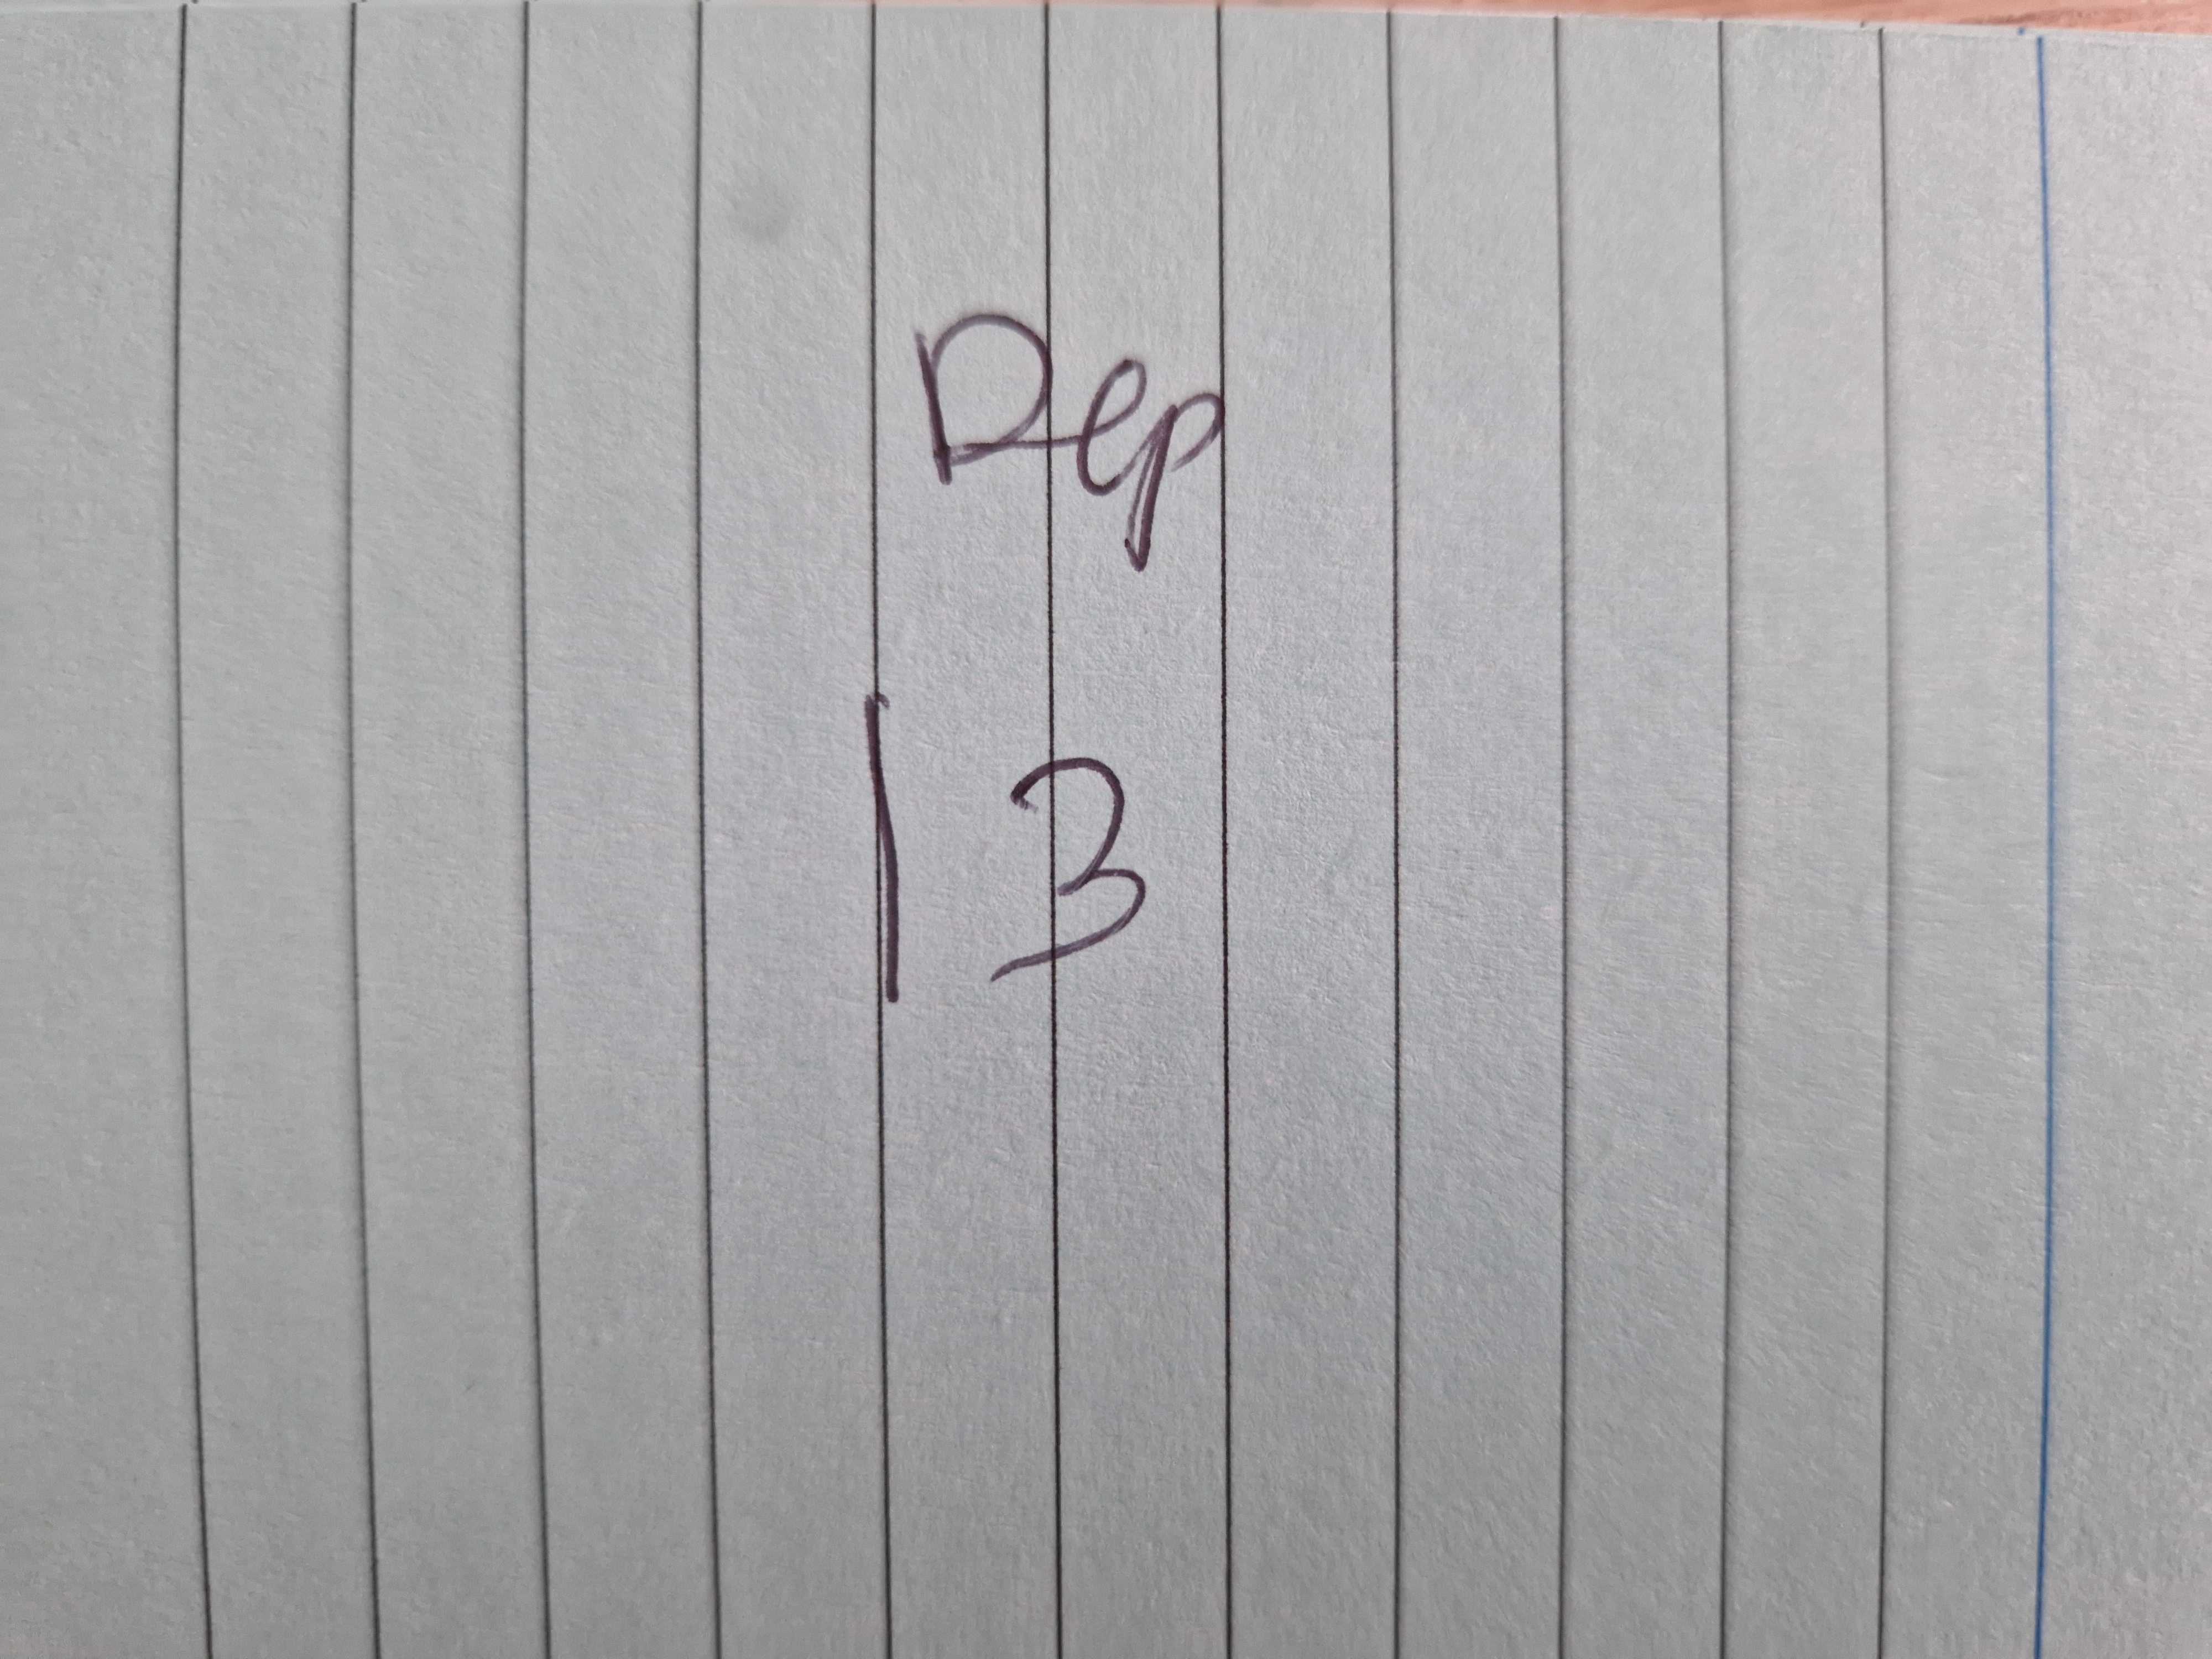 Dep
13